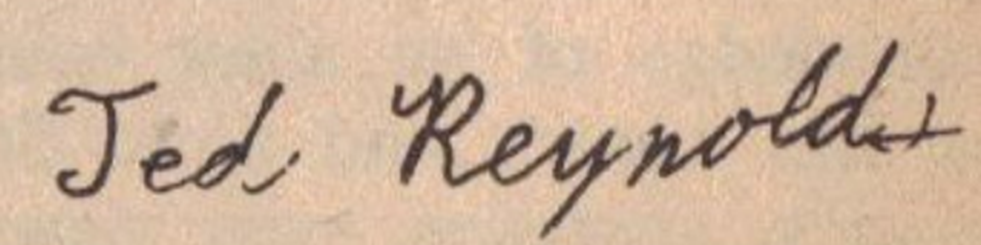 Ted Reynolds